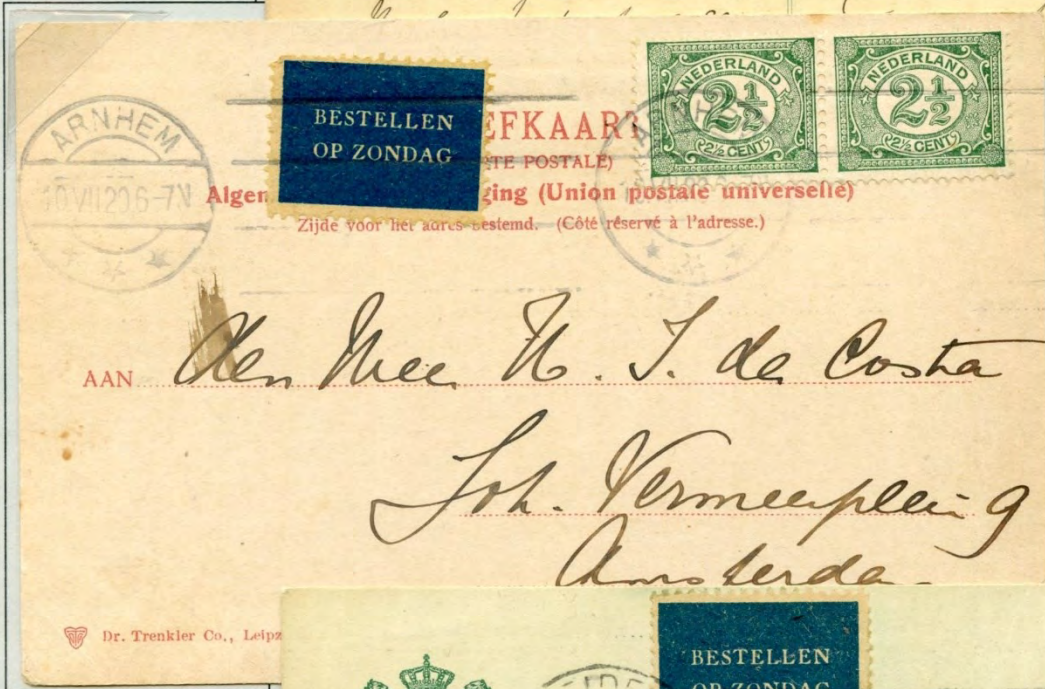 BESTELLEN
OP ZONDAG
EFKAART
TE POSTALE)
Algem ging (Union postale universelle)
Zijde voor het adres bestemd. (Côté réservé à l'adresse.)
NEDERLAND
2½
2½ CENT
NEDERLAND
2½
2½ CENT
ARNHEM
10 VII 20 6-7N
AAN den Heer N. J. da Costa
Joh. Vermeerplein 9
Amsterda
Dr. Trenkler Co., Leipz
BESTELLEN
OP ZONDAG